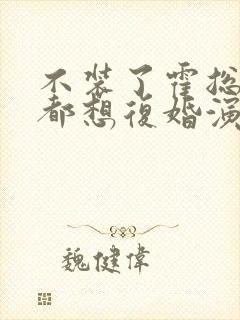 不装了霍总
都想復婚演
魏健偉